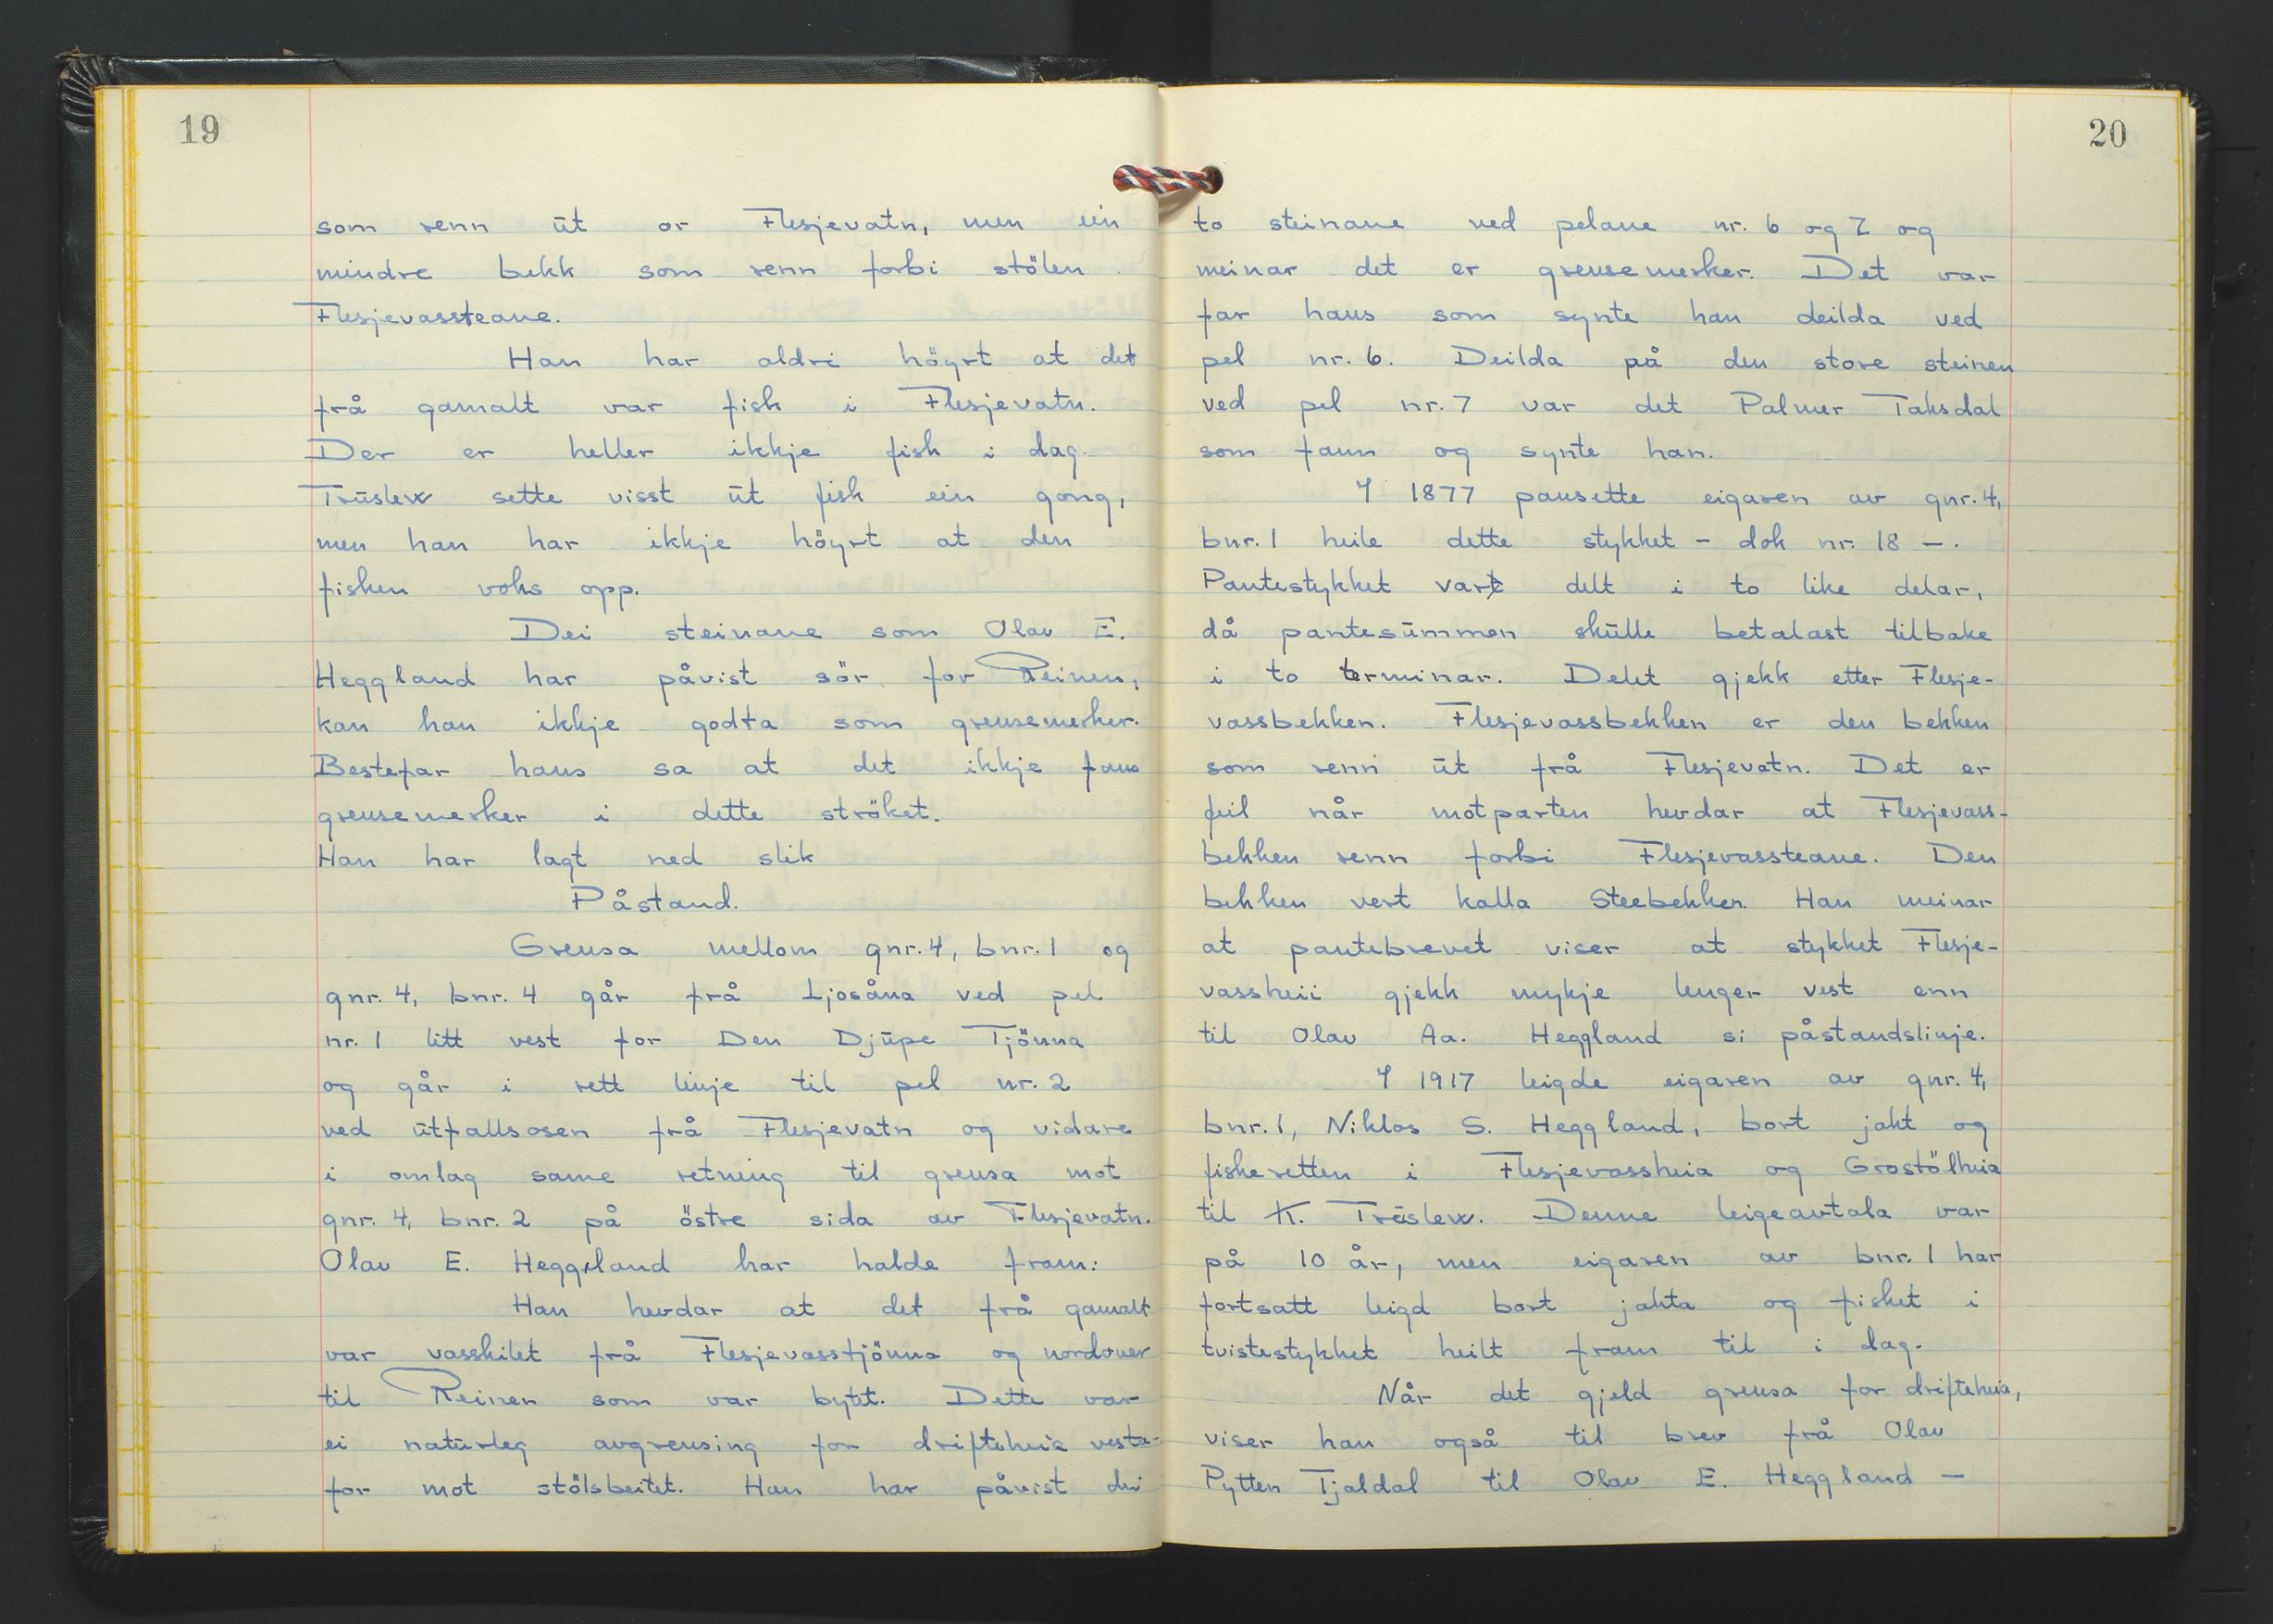 19
som renn ut or Flesjevatn, men ein
mindre bekk som renn forbi stölen
Flesjevassteane.
Han har aldri höyrt at det
frå gamalt var fisk i Flesjevatn.
Der er heller ikkje fisk i dag.
Truslew sette visst ut fisk ein gong,
men han har ikkje höyrt at den
fisken voks opp.
Dei steinane som Olav E.
Heggland har påvist sör for Reinen,
kan han ikkje godta som grensemerker.
Bestefar hans sa at det ikkje fans
grensemerker i dette ströket.
Han har lagt ned slik
Påstand.
Grensa mellom gnr. 4, bnr. 1 og
gnr. 4, bnr. 4 går frå Ljosåna ved pel
nr. 1 litt vest for Den Djupe Tjönna
og går i rett linje til pel nr. 2
ved utfallsosen frå Flesjevatn og vidare
i omlag same retning til grensa mot
gnr. 4, bnr. 2 på östre sida av Flesjevatn.
Olav E. Heggland har halde fram:
Han hevdar at det frå gamalt
var vasskilet frå Flesjevasstjönna og nordover
til Reinen som var bytt. Dette var
ei naturleg avgrensing for drifteheia vesta-
for mot stölsbeitet. Han har påvist dei
20
to steinane ved pelane nr. 6 og 7 og
meinar det er grensemerker. Det var
far hans som synte han deilda ved
pel nr. 6. Deilda på den store steinen
ved pel nr. 7 var det Palmer Taksdal
som fann og synte han.
I 1877 pansette eigaren av gnr. 4,
bnr. 1 heile dette stykket - dok nr. 18 -.
Pantestykket var delt i to like delar,
då pantesummen skulle betalast tilbake
i to terminar. Delet gjekk etter Flesje-
vassbekken. Flesjevassbekken er den bekken
som renn ut frå Flesjevatn. Det er
feil når motparten hevdar at Flesjevass-
bekken renn forbi Flesjevassteane. Den
bekken vert kalla Steebekken. Han meinar
at pantebrevet viser at stykket Flesje-
vassheii gjekk mykje lenger vest enn
til Olav Aa. Heggland si påstandslinje.
I 1917 leigde eigaren av gnr. 4,
bnr. 1, Niklos S. Heggland, bort jakt og
fiskeretten i Flesjevassheia og Grostölheia
til K. Truslew. Denne leigeavtala var
på 10 år, men eigaren av bnr. 1 har
fortsatt leigd bort jakta og fisket i
tvistestykket heilt fram til i dag.
Når det gjeld grensa for drifteheia,
viser han også til brev frå Olav
Pytten Tjaldal til Olav E. Heggland -